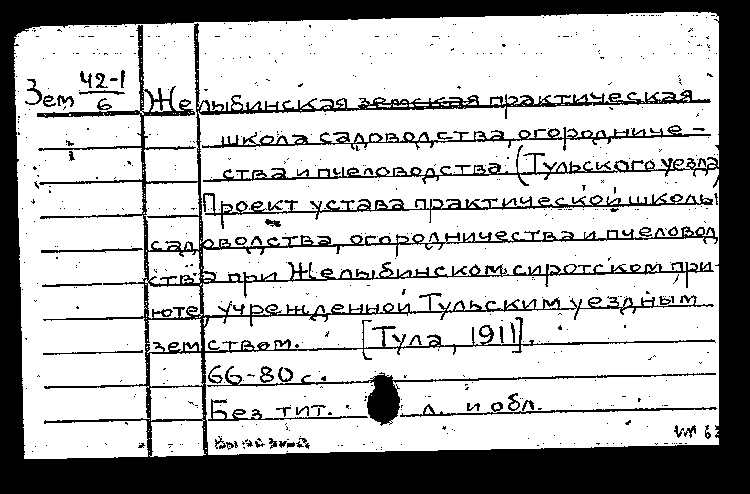 Зем 42-1/6 Желыбинская земская практическая
школа садоводства, огородниче-
ства и пчеловодства. (Тульского уезда
Проект устава практической школы
садоводства, огородничества и пчеловод
ства при Желыбинском сиротском при-
юте, учрежденной Тульским уездным
земством. [Тула, 1911].
66-80 с.
Без тит. л. и обл.